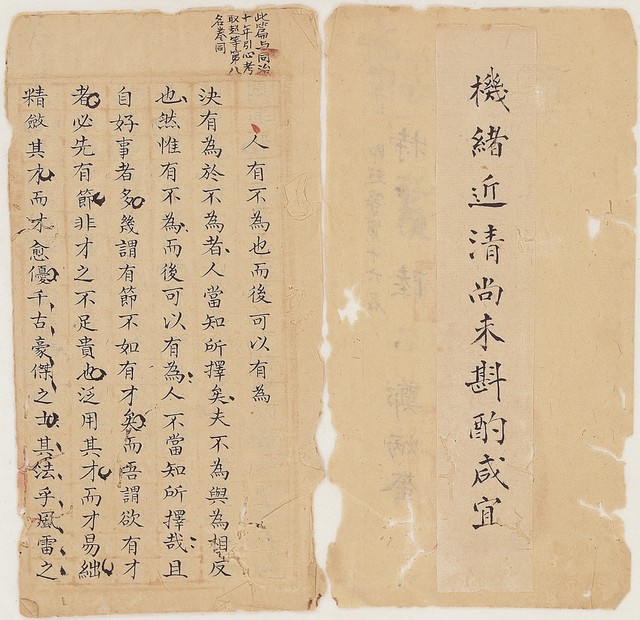 機緒近清尚未斟酌咸宜
此篇与同治
十年引心考
取超等第八
名卷同
人有不為也而後可以有為
決有為於不為者人當知所擇矣夫不為與為相反
也然惟有不為而後可以有為人不當知所擇哉且
自好事者多幾謂有節不如有才矣而吾謂欲有才
者必先有節非才之不足貴也泛用其才而才易絀
精斂其才而才愈優千古豪傑之士其法乎風雷之